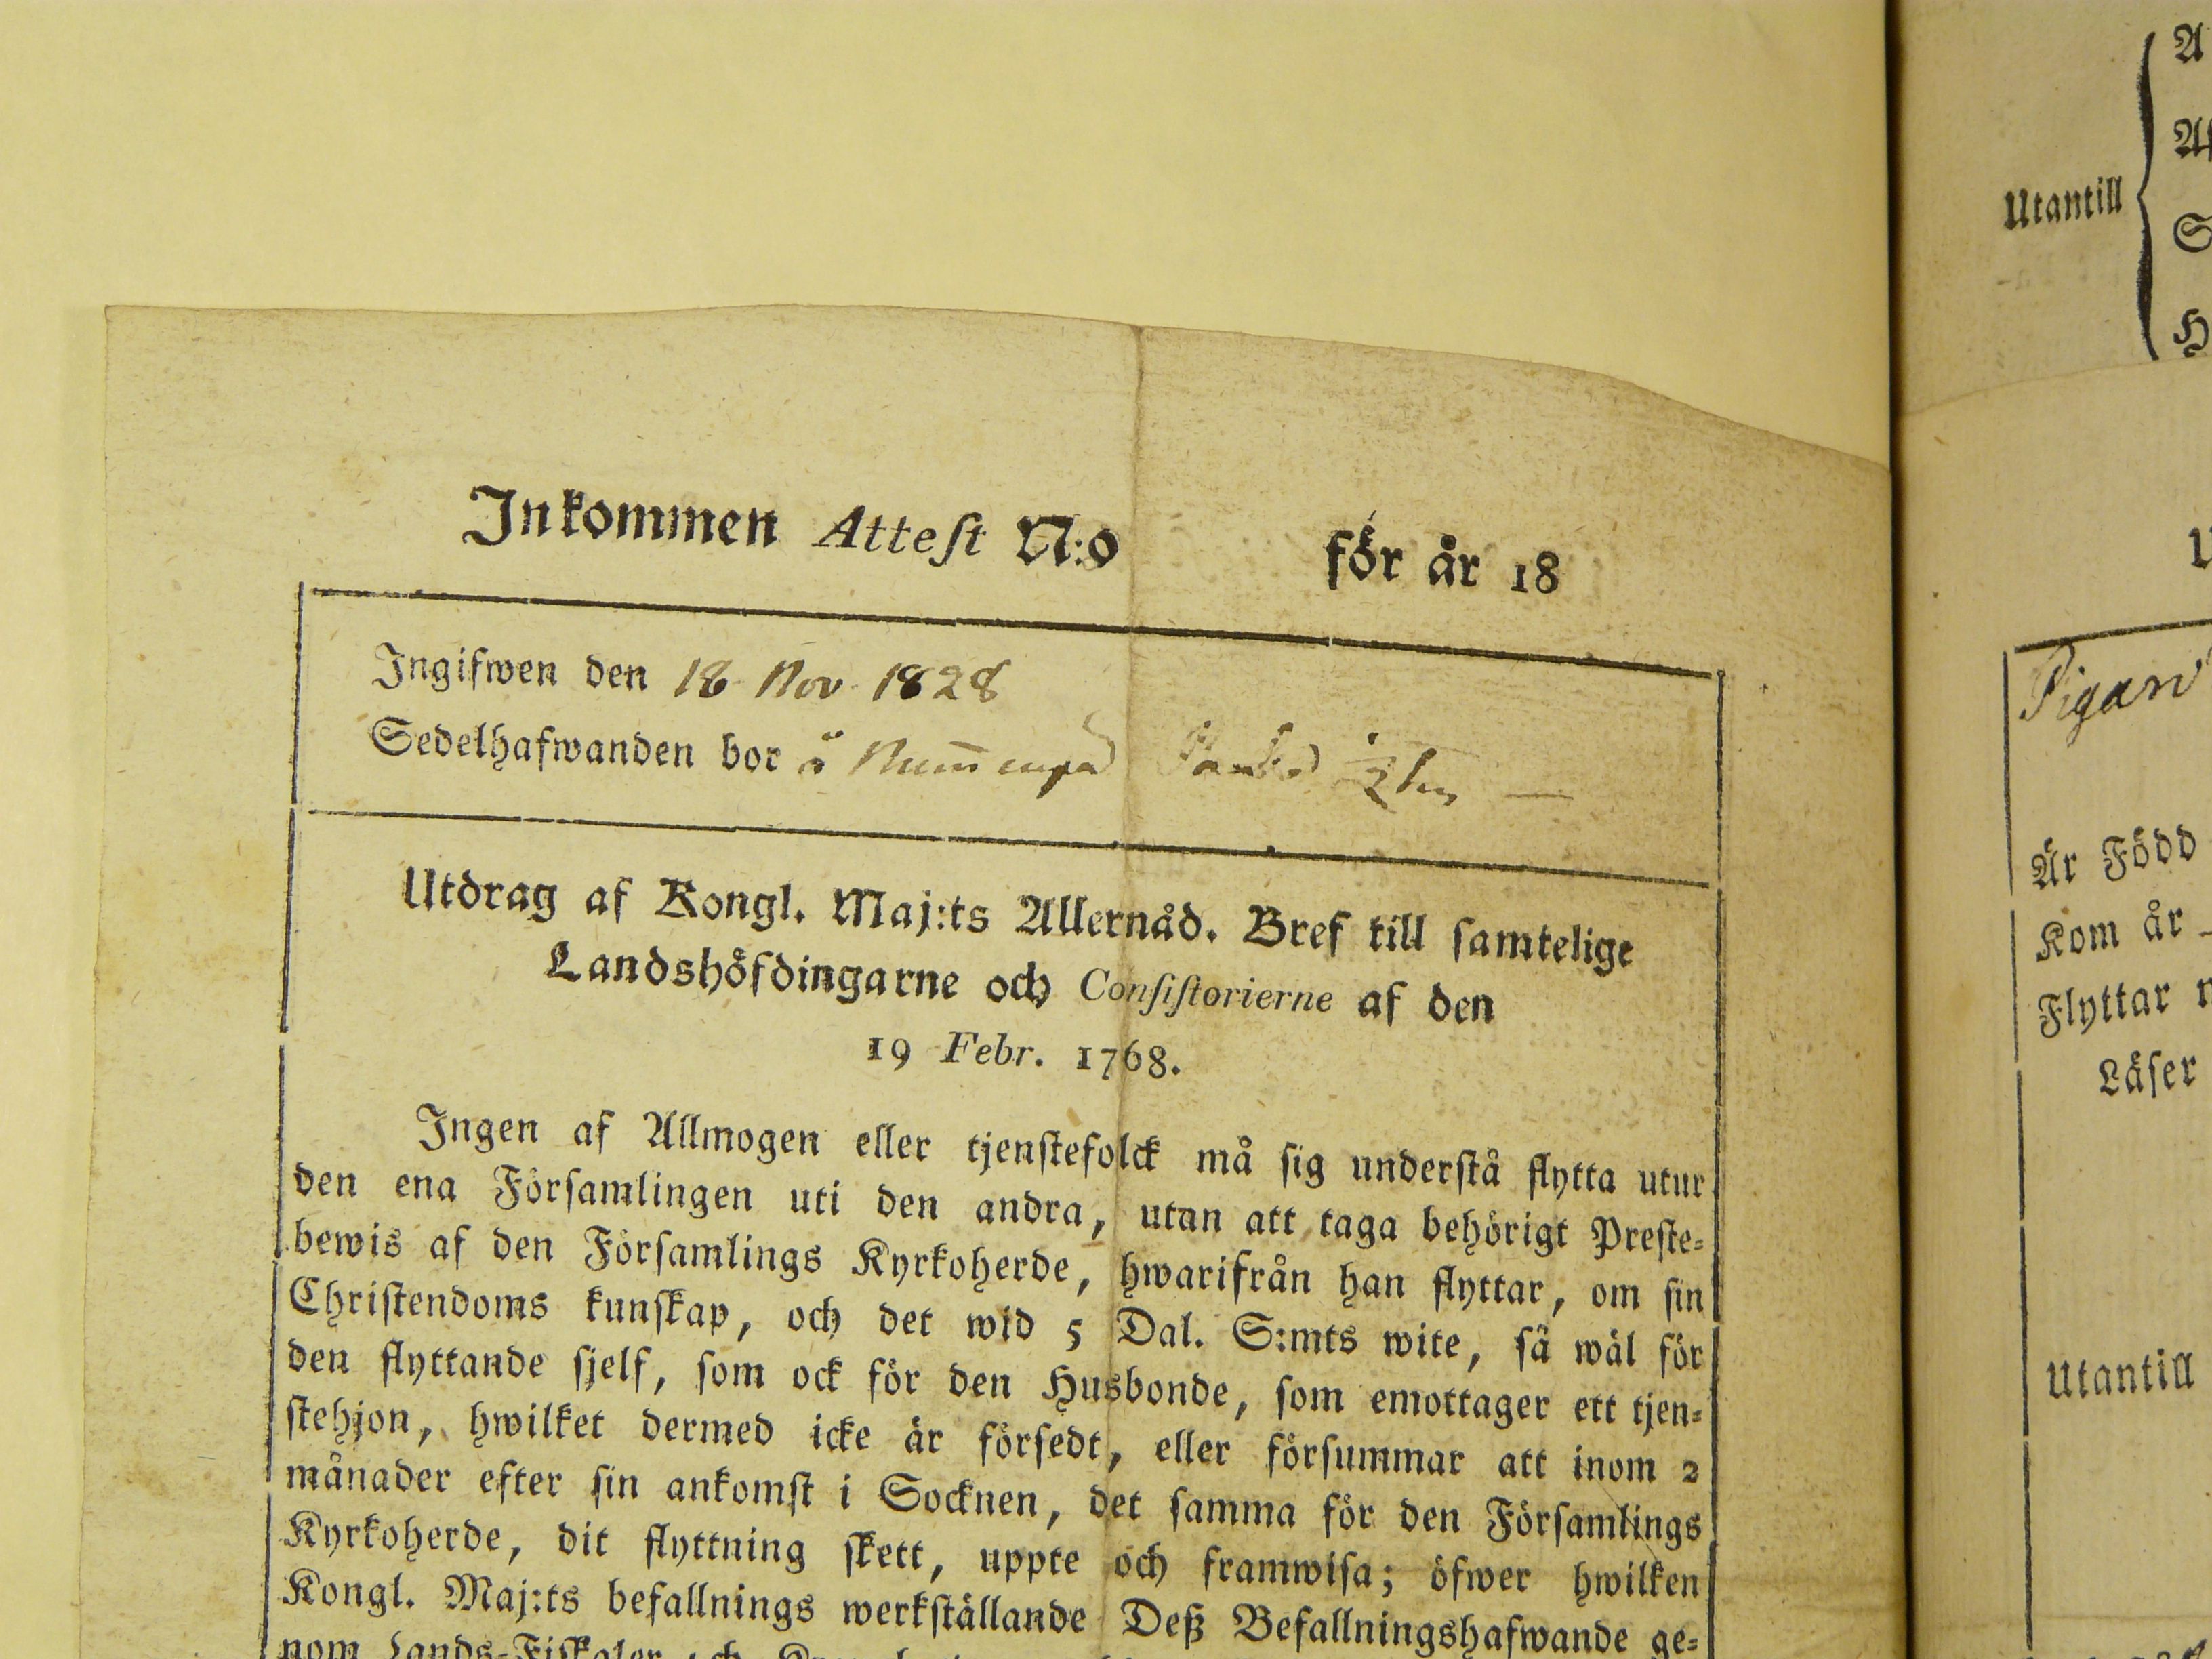 Inkommen Atteſt N:o för år 18
Ingifwen den 18 Nov 1828
Sedelhafwanden bor å
Utdrag af Kongl. Maj:ts Allernåd. Bref till ſamtelige
Landshöfdingarne och Conſiſtorierne af den
19 Febr. 1768.
Ingen af Allmogen eller tjenſtefolck må ſig underſtå flytta utur
den ena Förſamlingen uti den andra, utan att taga behörigt Preſte-
bewis af den Förſamlings Kyrkoherde, hwarifrån han flyttar, om ſin
Chriſtendoms kunſkap, och det wid 5 Dal. S:mts wite, ſå wäl för
den flyttande ſjelf, ſom ock för den Husbonde, ſom emottager ett tjen-
ſtehjon, hwilket dermed icke är förſedt, eller förſummar att inom 2
månader efter ſin ankomſt i Socknen, det ſamma för den Förſamlings
Kyrkoherde, dit flyttning ſkett, uppte och framwiſa; öfwer hwilken
Kongl. Maj:ts befallnings werkſtällande Deß Befallningshafwande ge-
nom Lands-Fiſkaler och
A
Af
Utantill
S
H
U
Pigan
Är Född
Kom år
Flyttar
Läſer
Utantill